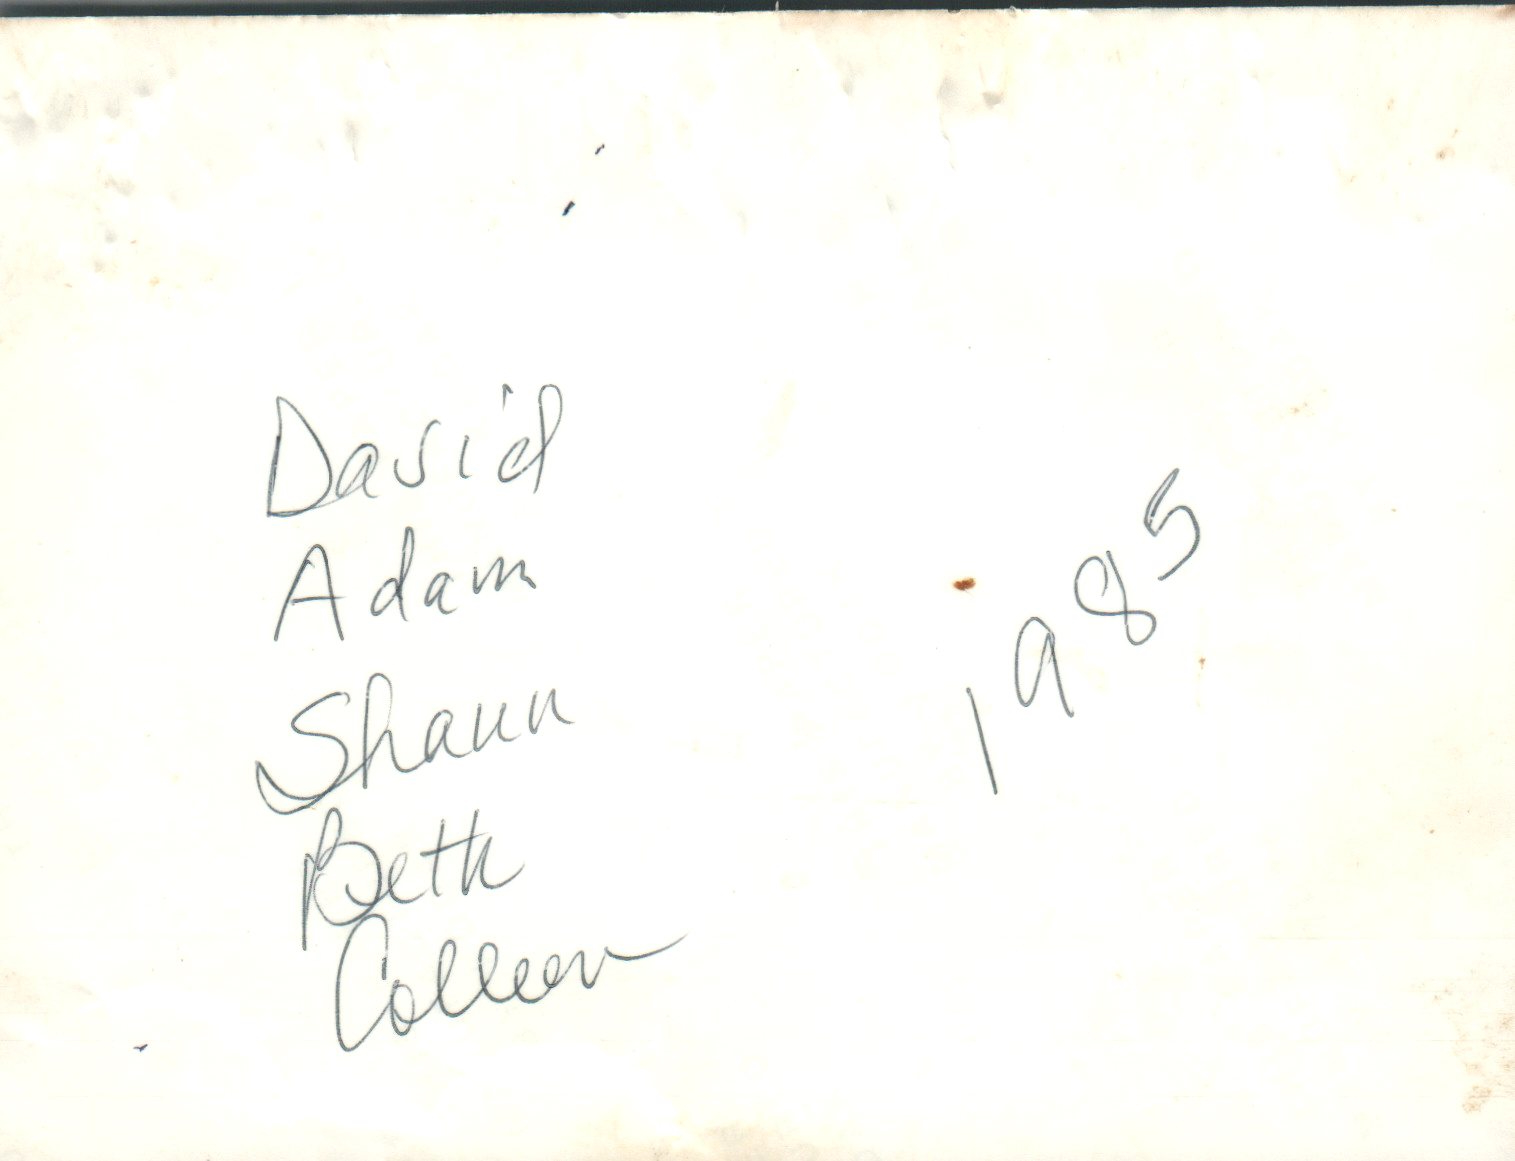 David
Adam
Shaun
Beth
Colleen
1985